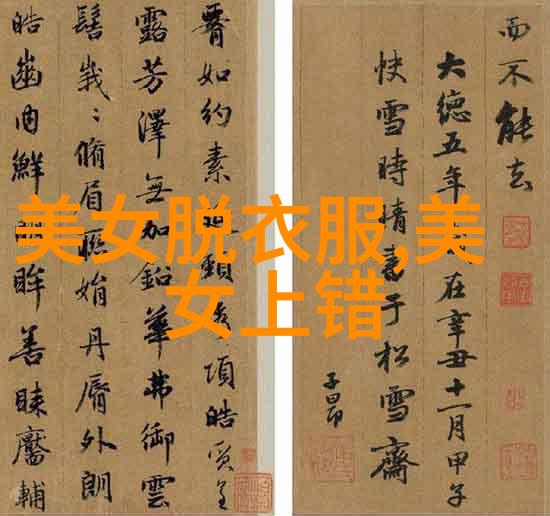 署如約素頸項皓質呈
露芳澤無加鉛華弗御雲
髻峩〻脩眉聯娟丹脣外朗
皓齒内鮮眸善睞靨輔
而不能去
大德五年在辛丑十一月甲子
快雪時晴書于松雪齋
子昂
美女脱衣服,美
女上错